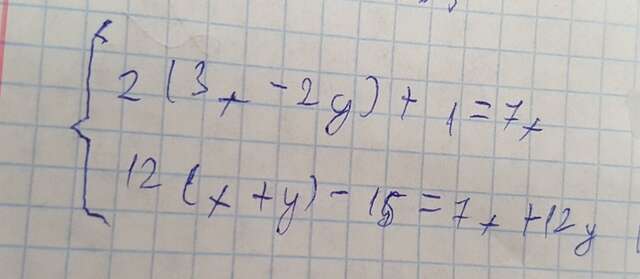 2(3x-2y)+1=7x
12(x+y)-15=7x+12y